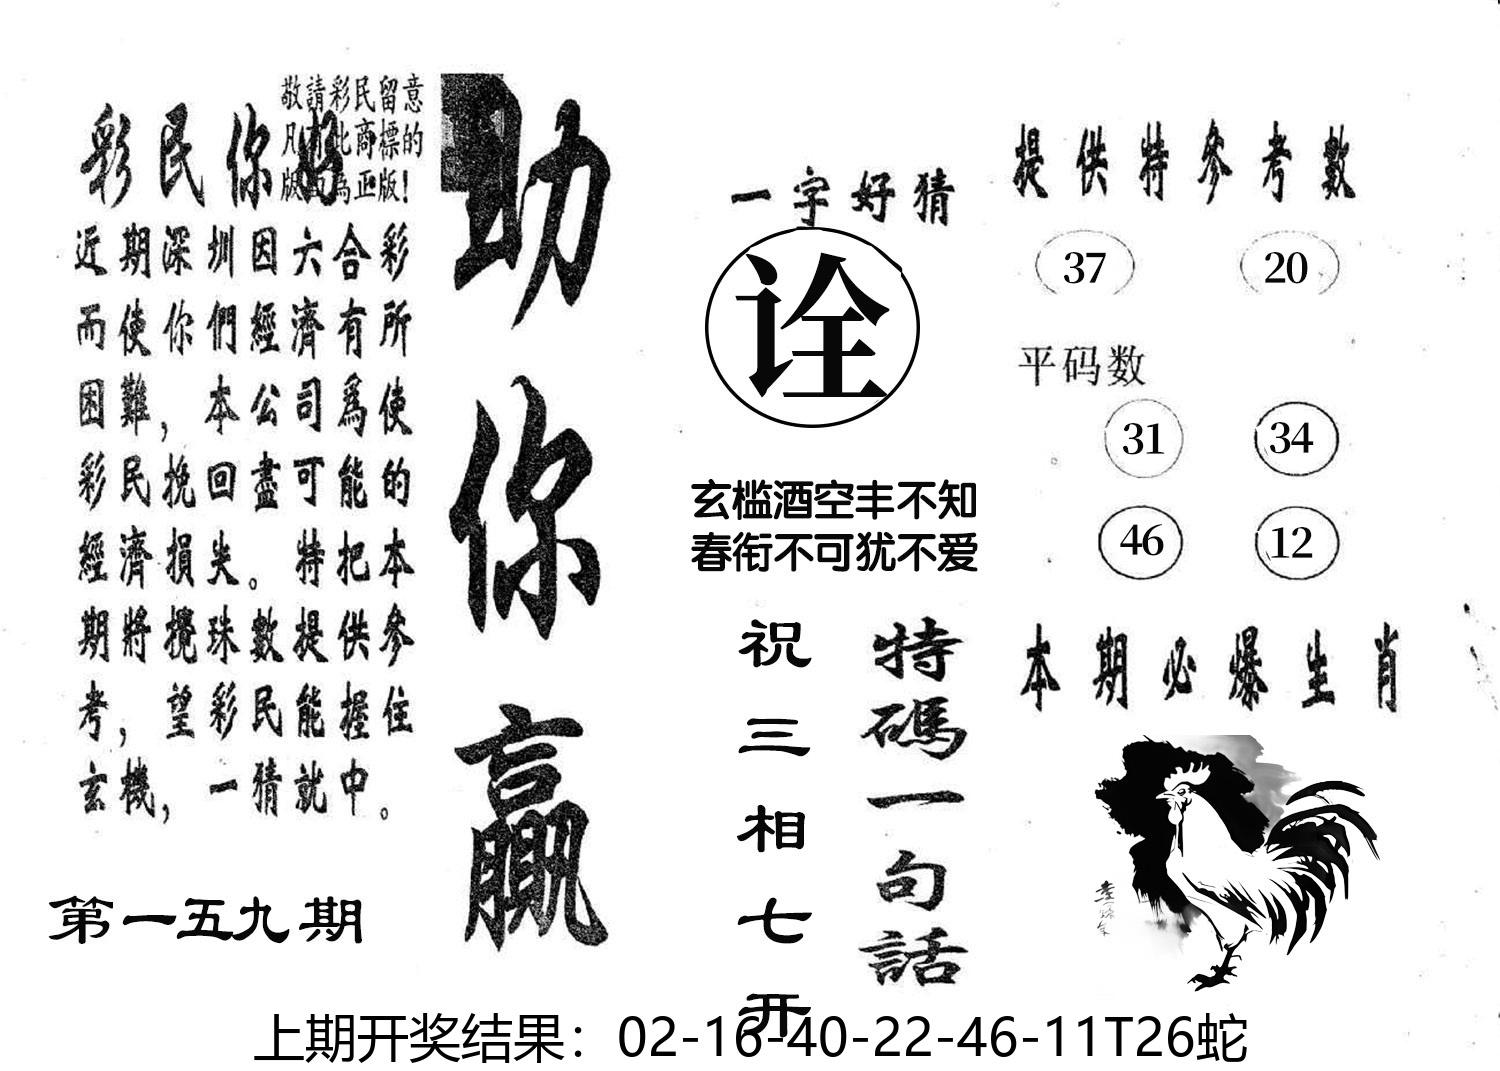 敬請彩民留意
凡有此商標的
版面為正版！
彩民你好
近期深圳因六合彩
而使你們經濟有所
困難，本公司爲使
彩民挽回盡可能的
經濟損失。特把本
期將攪珠數提供參
考，望彩民能握住
玄機，一猜就中。
第一五九期
助你贏
一字好猜
诠
玄槛酒空丰不知
春衔不可犹不爱
特碼一句話
祝三相七开
提供特參考數
37 20
平码数
31 34
46 12
本期必爆生肖
上期开奖结果：02-16-40-22-46-11T26蛇